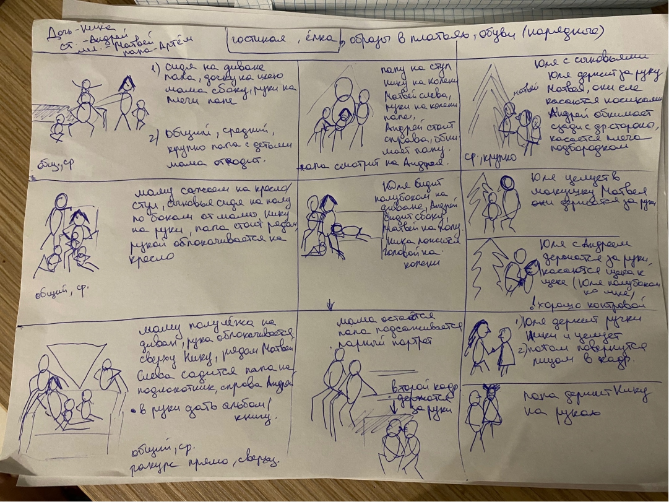 Дочь - Кика
ст. - Андрей
мл. - Матвей
папа - Артём
гостиная, ёлка, образы в платьях, обуви (нарядные)
1) сидя на диване
папа, дочку на шею
мама сбоку, руки на
плечи папе
2) Общий, средний,
крупно папа с детьми
мама отходит.
общ, ср
папу на стул
Кику на колени
Матвей слева,
руки на колени
папе,
Андрей стоит
справа, обни-
мает папу.
папа смотрит на Андрея.
Юля с сыновьями
Юля держит за руку
Матвея, они сле
касаются носиками
Андрей обнимает
сзади с др стороны,
касается плеча
подбородком
матвей
ср, крупно
маму сажаем на кресло/
стул, сыновья сидя на полу
по бокам от мамы, Кику
на руки, папа стоит рядом
рукой облокачивается на
кресло
общий, ср.
Юля сидит
полубоком на
диване, Андрей
сидит сбоку
Матвей на полу
Кика ложится
головой на
колени
Юля целует в
макушку Матвея
они держатся за руки
Юля с Андреем
держатся за руки,
касаются щека к
щеке (Юля полубоком
хорошо контровой
маму полулёжа на
диван, рука облокачивается,
сверху Кику, рядом Матвей
Слева садится папа на
подлокотник, справа Андрей
• в руки дать альбом/
книгу.
общий, ср.
ракурс прямо, сверху.
мама остаётся
папа подсаживается
парный портрет
второй кадр
держатся
за руки
1) Юля держит ручки
Кики и целует
2) потом повернутся
лицом в кадр
папа держит Кику
на руках